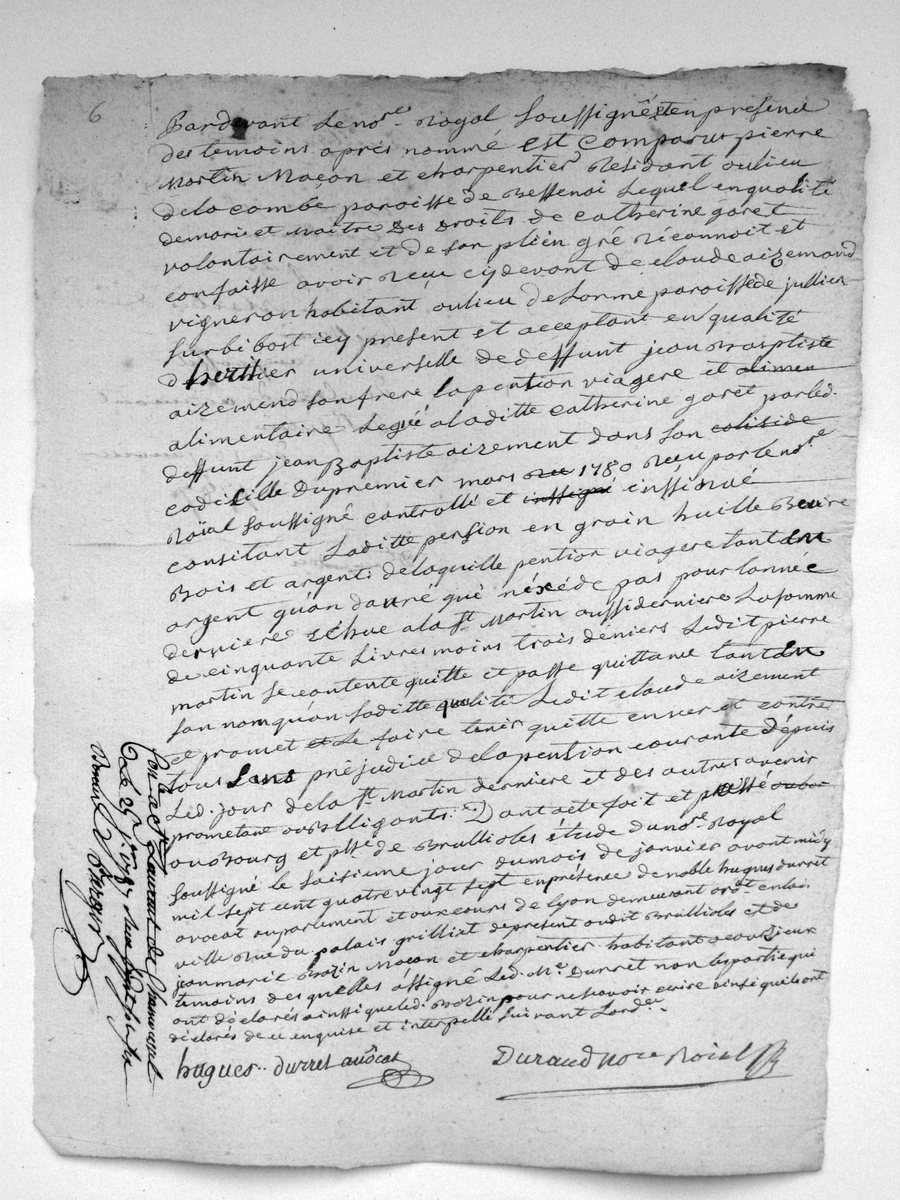 6
Pardevant Le nore. Royal Soussigné et en presence
des temoins apres nommé est Comparut pierre
Martin Maçon et charpentier Residant au lieu
de la combe paroisse de Bessenai Lequel en qualité
de mari et maitre des Droits de Catherine garet
volontairement et de son plein gré Reconnoit et
confaisse avoir Reçu cy devant de claude aizemand
vigneron habitant au lieu de Lorme paroisse de jullien
sur bibost icy present et acceptant en qualité
d'heritier universelle de deffunt jean Baptiste
aizemend son frere la pention viagere et alimen
alimentaire Legué a laditte Catherine garet par led.
deffunt jean Baptiste aizement dans son
codicille du premier mars 1780 Reçu par le nore
Roïal soussigné controllé et inssinué
consitant Laditte pension en grain huille Beurre
Bois et argent de laquelle pention viagere tant en
argent qu'an danré qui n'éxéde pas pour l'année
derniere echue a la st. Martin aussi derniere La somme
de cinquante Livres moins trois deniers Ledit pierre
martin se contente quitte et passe quittance tant en
son nom qu'en saditte qualité Ledit claude aizement
et promet Le faire tenir quitte enver et contre
tous Sans préjudice de la pention courante depuis
Led. jour de la st. Martin derniere et des autres avenir
prometant obligants. Dont acte fait et passé
au Bourg et psse de Brullioles étude du nore Royal
soussigné le saisieme jour du mois de janvier avant midy
mil sept cent quatre vingt sept en présence de noble hugues durret
avocat au parlement et aux cours de lyon demeurant ordt en la.
ville Rue du palais grilliet de present audit Brullioles et de
jean marie Bazin Maçon et charpentier habitant a courzieux
temoins des quelles assigné Led. Me. Durret non les partie qui
ont déclarés ainssi que led. Bazin pour ne scavoir ecrire ainssi qu'ils ont
déclarés de ce enquise et interpellé suivant Lordce..
hugues.. durret avôcat
Durand nore Roial
Conlé a St Laurent de Chamousset
le 25 jer 1787 Reçu